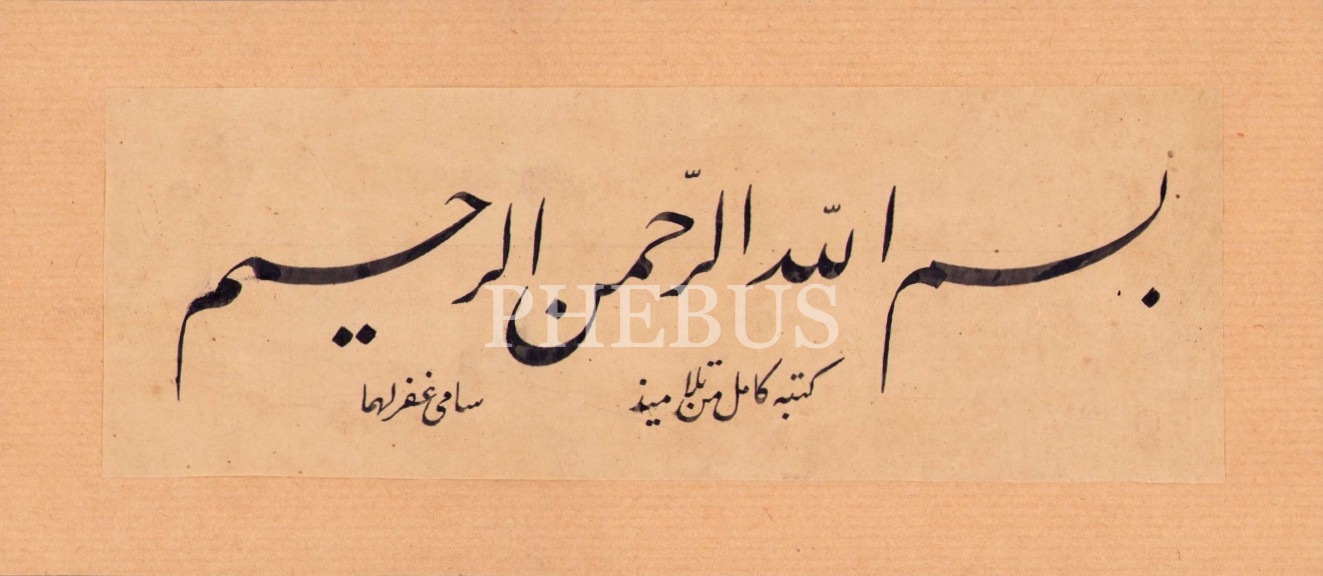 بسم اللّه الرّحمن الرحيم
PHEBUS
كتبه كامل من تلاميذ سامى غفر لهما